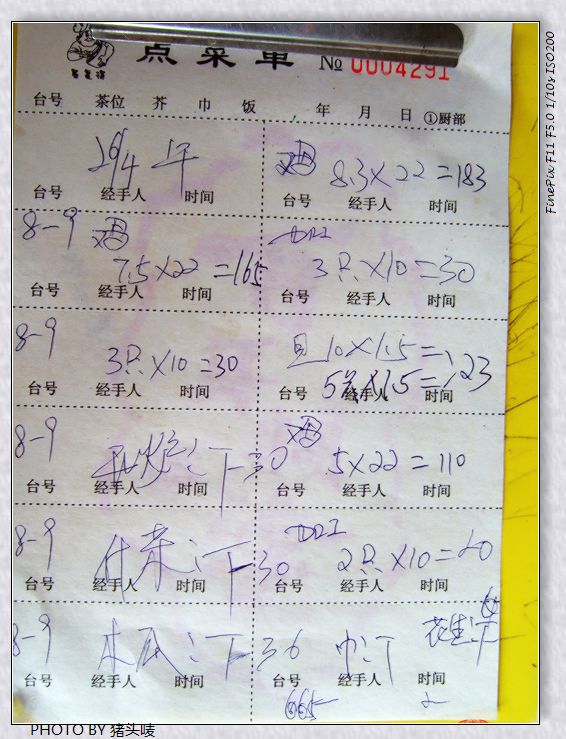 点菜单 № 0004291
台号 茶位 芥 巾 饭 年 月 日 ①厨部
26/4
8.3×22=183
台号 经手人 时间
台号 经手人 时间
8-9
7.5×22=165
3只×10=30
台号 经手人 时间
台号 经手人 时间
8-9
3只×10=30
10×1.5=
5×1.5=123
台号 经手人 时间
台号 经手人 时间
8-9
30
5×22=110
台号 经手人 时间
台号 经手人 时间
8-9
什菜 30
2只×10=20
台号 经手人 时间
台号 经手人 时间
8-9
木瓜 36
花生
台号 经手人 时间
台号 经手人 时间
665
FinePix F11 F5.0 1/10s ISO200
PHOTO BY 猪头唛